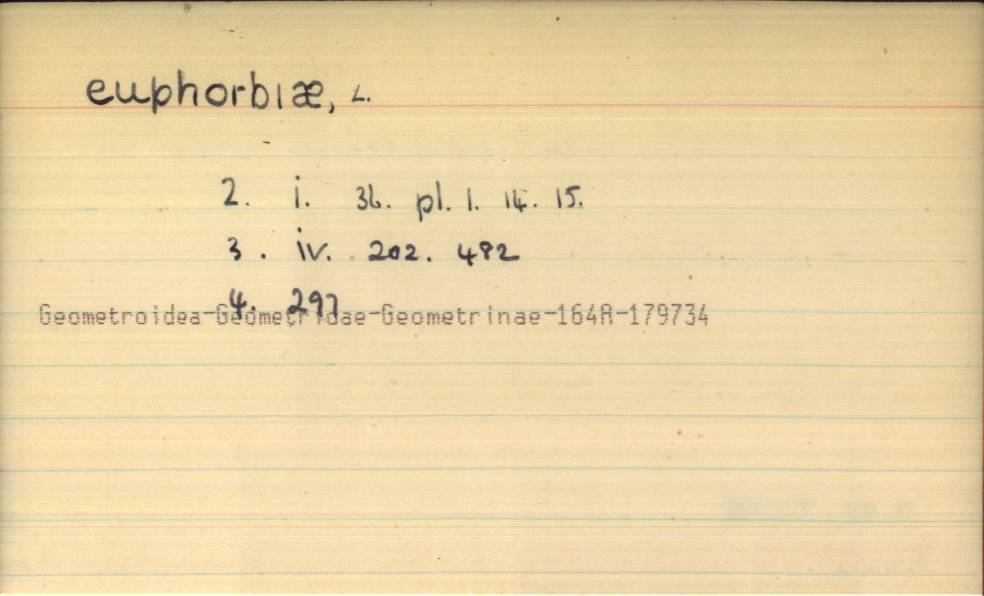 euphorbiæ, L.
2. i. 36. pl. 1. 14. 15.
3. iv. 202. 482
4. 297
Geometroidea-Geometridae-Geometrinae-164A-179734